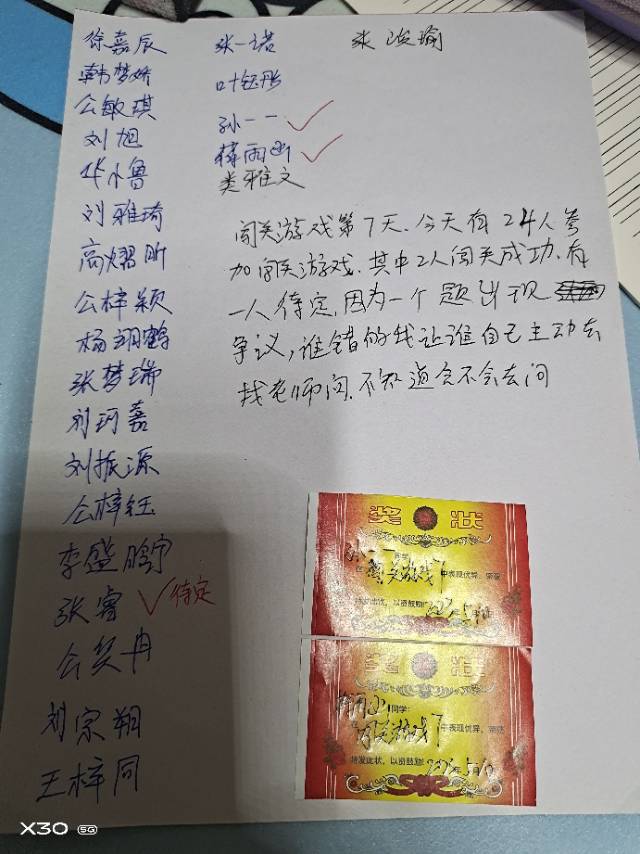 徐嘉辰
韩梦娇
公敏琪
刘旭
华小鲁
刘雅琦
高熠昕
公梓颖
杨翊鹤
张梦瑞
刘珂嘉
刘振源
公梓钰
李盛鹏宇
张睿 待定
公奕冉
刘宗翔
王梓同
张一诺
叶钰彤
孙一一
雨函
类雅文
张 浚瑜
闯关游戏第7天.今天有24人参
加闯关游戏.其中2人闯关成功.有
一人待定.因为一个题出现
争议,谁错的我让谁自己主动去
找老师问.不知道会不会去问
奖 状
孙一一 同学:
在 闯关游戏7 中表现优异,荣获
特发此状,以资鼓励!
奖 状
雨函 同学:
闯关游戏7 中表现优异,荣获
特发此状,以资鼓励!
X30 5G